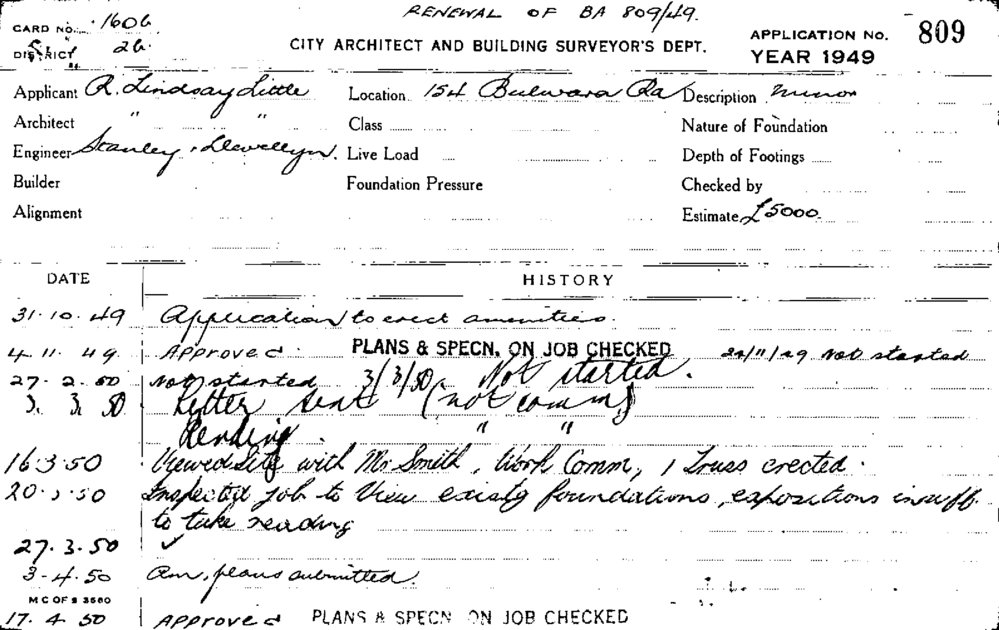 RENEWAL OF BA 809/49.
CARD NO. 1606
DISTRICT 26.
CITY ARCHITECT AND BUILDING SURVEYOR'S DEPT.
APPLICATION NO. 809
YEAR 1949
Applicant R. Lindsay Little Location 154 Bulwara Rd Description Minor
Architect " " Class Nature of Foundation
Engineer Stanley & Llewellyn. Live Load Depth of Footings
Builder Foundation Pressure Checked by
Alignment Estimate £5000.
DATE HISTORY
31.10.49 Application to erect amenities.
4.11.49 Approved. PLANS & SPECN. ON JOB CHECKED 22/11/49 Not started
27.2.50 Not started 3/3/50. Not started.
3. 3. 50 Letter sent (not comm)
Pending. " "
16.3.50 Viewed Site with Mr Smith, Work Comm, 1 Truss erected.
20.3.50 Inspected job to View existg foundations, expositions insuff.
to take reading
27.3.50 ✓
3-4.50 Am. plans submitted.
M C OF S 3560
17. 4 50 Approved PLANS & SPECN ON JOB CHECKED